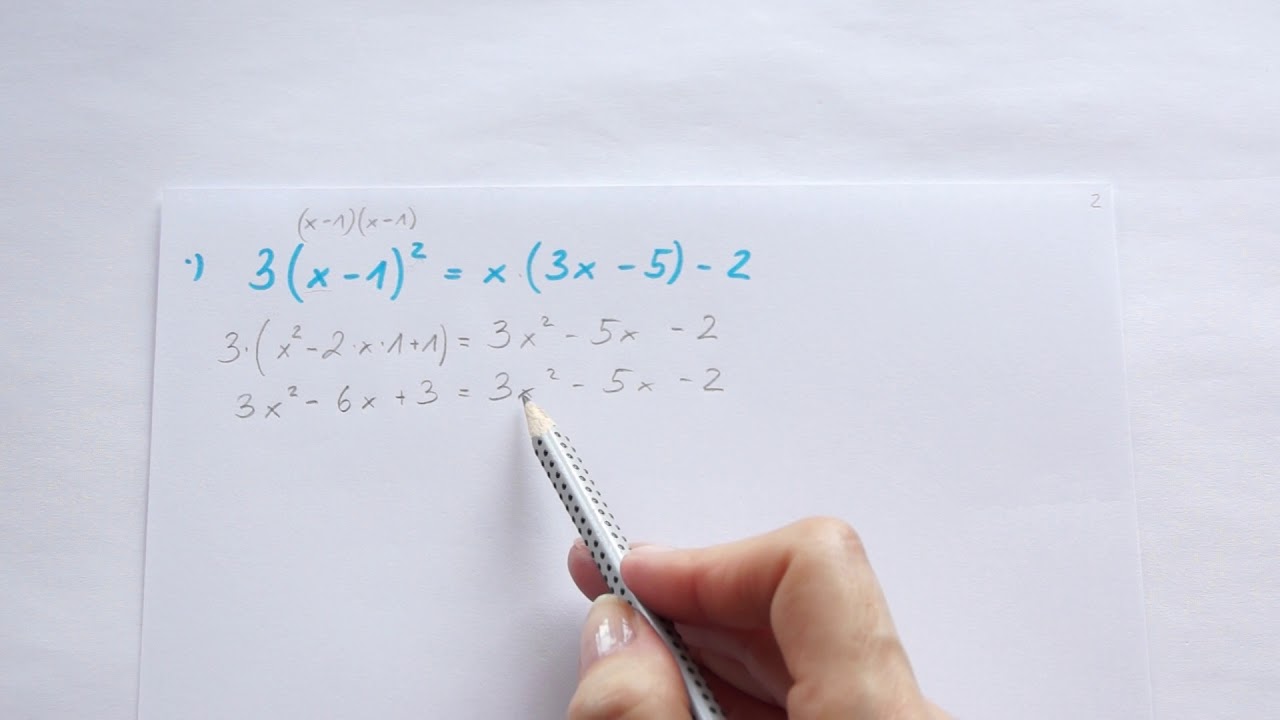 2
(x-1)(x-1)
·) 3(x-1)² = x·(3x-5)-2
3·(x²-2·x·1+1) = 3x²-5x -2
3x²-6x+3 = 3x²-5x-2